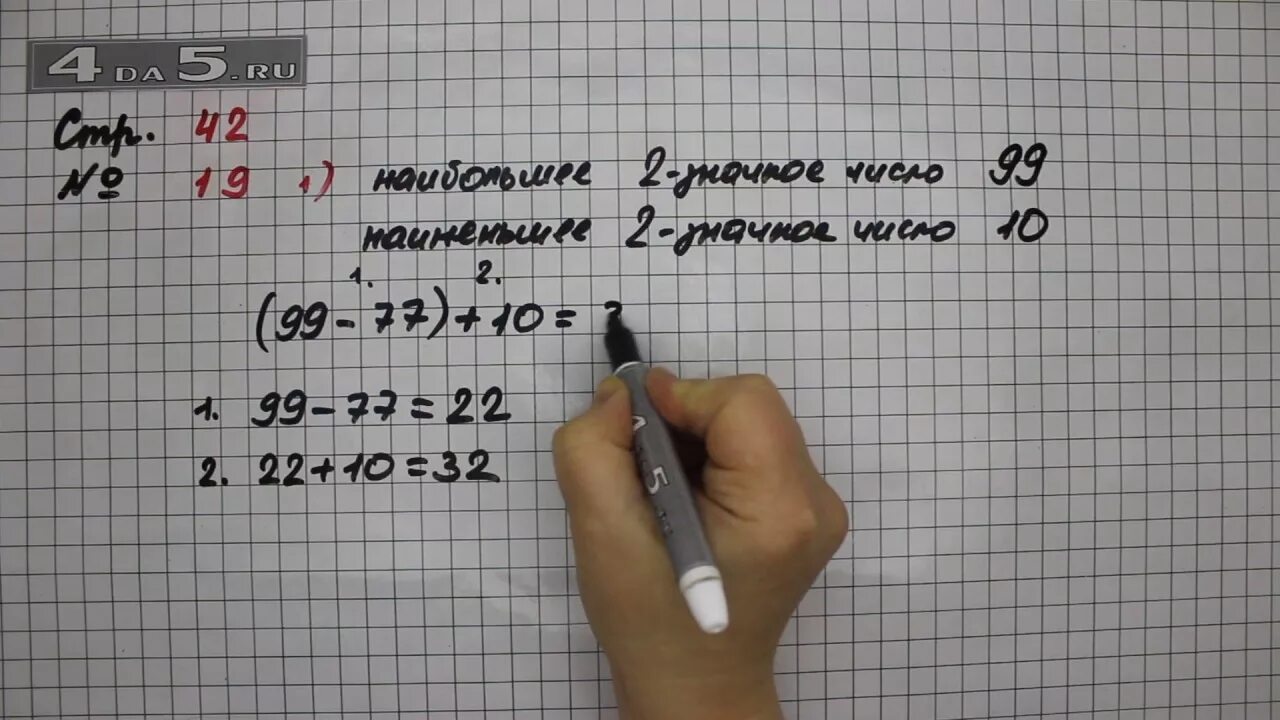 4DA5.RU
Стр. 42
№ 19 1) наибольшее 2-значное число 99
наименьшее 2-значное число 10
1. 2.
(99-77)+10=
1. 99-77=22
2. 22+10=32